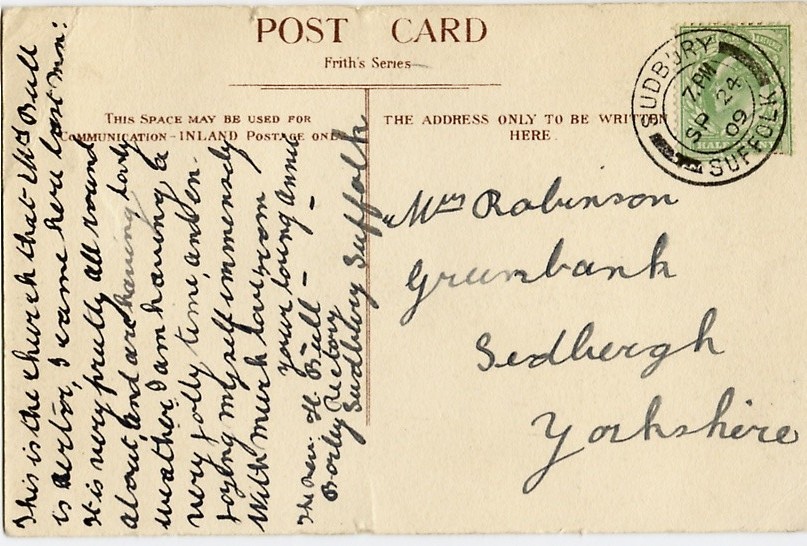 POST CARD
Frith's Series
THIS SPACE MAY BE USED FOR
COMMUNICATION - INLAND POSTAGE ONLY
THE ADDRESS ONLY TO BE WRITTEN
HERE.
SUDBURY
7.PM
SP 24
09
SUFFOLK
HALF
This is the church that Mr Bull
is Rector, I came here last Mon:
It is very pretty all round
about and are having lovely
weather. I am having a
very jolly time, and en-
joying myself immensely
With much love from
your loving Annie
The Rev. H. Bull -
Borley Rectory
Sudbury Suffolk
Mrs Robinson
Greenbank
Sedbergh
Yorkshire